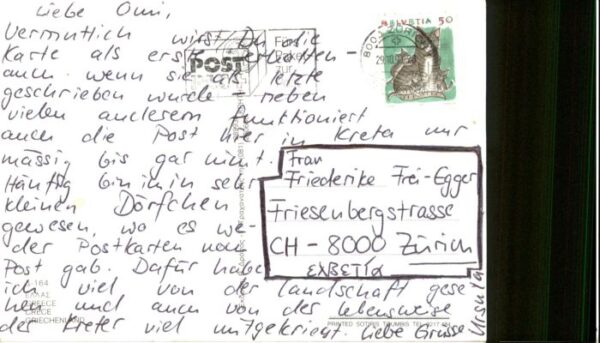 Liebe Omi,
Vermutlich wirst Du die
Karte als erste erhalten -
auch wenn sie als letzte
geschrieben wurde - neben
vielem anderem funktioniert
auch die Post hier in Kreta nur
mässig bis gar nicht.
Häufig bin ich in sehr
kleinen Dörfchen
gewesen, wo es we-
der Postkarten noch
Post gab. Dafür habe
ich viel von der Landschaft gese
hen und auch von der Lebensweise
der Kreter viel mitgekriegt. Liebe Grüsse
Ursula
HELVETIA 50
ZÜRICH
POST
Für
Pakete
zur
Frau
Friederike Frei-Egger
Friesenbergstrasse
CH - 8000 Zürich
ΕΛΒΕΤΊΑ
164
ΕΛΛΑΣ
GREECE
GRECE
GRIECHENLAND
PRINTED SOTIRIS TOUMBIS TEL